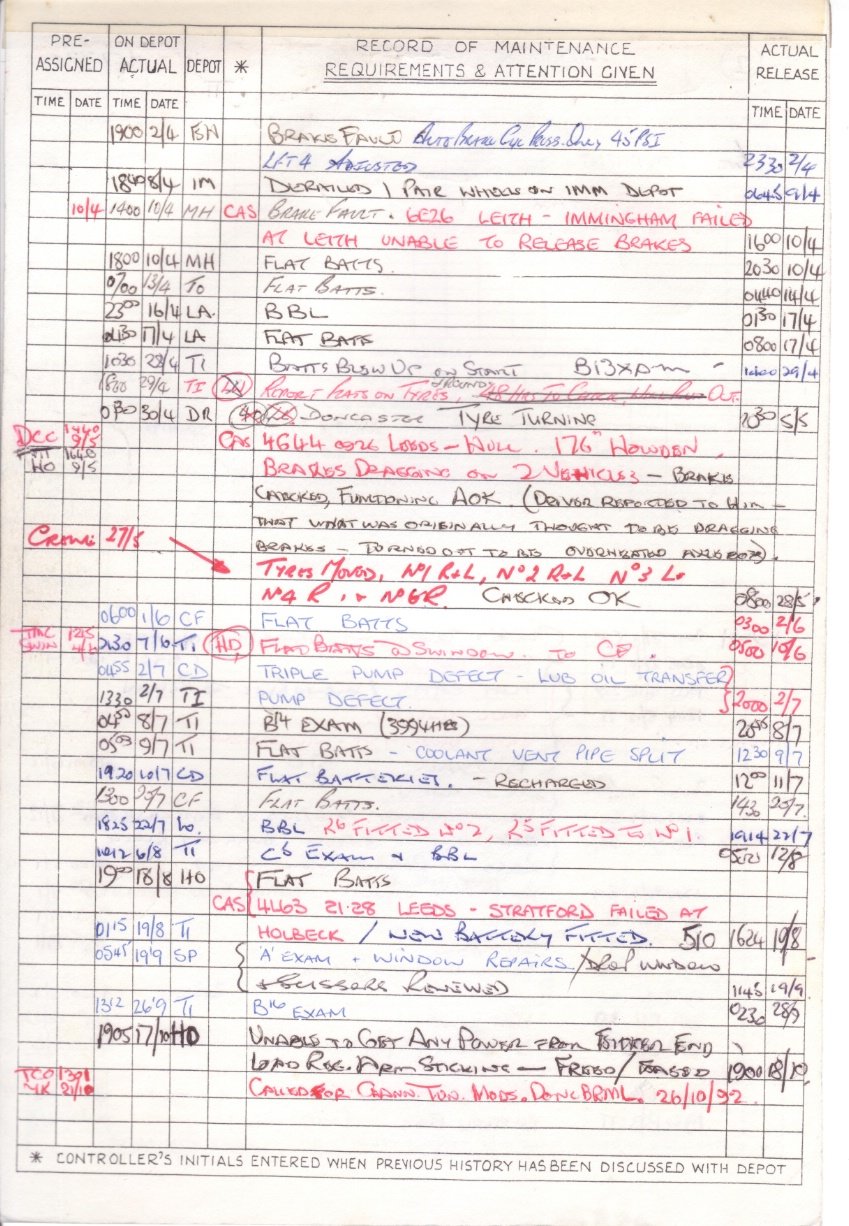 PRE-ASSIGNED ON DEPOT ACTUAL DEPOT * RECORD OF MAINTENANCE REQUIREMENTS & ATTENTION GIVEN ACTUAL RELEASE
TIME DATE TIME DATE TIME DATE
1900 2/4 BN BRAKE FAULT Auto Brake Cyl Press. Only 45 PSI
LFT 4 ADJUSTED 2330 2/4
1840 8/4 IM DERAILED 1 PAIR WHEELS ON IMM DEPOT 0645 9/4
10/4 1400 10/4 MH CAS BRAKE FAULT. 6E26 LEITH - IMMINGHAM FAILED
AT LEITH UNABLE TO RELEASE BRAKES 1600 10/4
1800 10/4 MH FLAT BATTS. 2030 10/4
0700 13/4 TO FLAT BATTS. 0440 14/4
2300 16/4 LA BBL 0130 17/4
0430 17/4 LA FLAT BATTS 0800 17/4
1030 28/4 TI BATTS BLOW UP ON START B13 29/4
1800 29/4 TI REPORT FLATS ON TYRES, OUT.
0130 30/4 DR DONCASTER TYRE TURNING 5/5
DCC 1440 9/5 CAS 4G44 0926 LEEDS - HULL. 176" HOWDEN.
HO 9/5 BRAKES DRAGGING ON 2 VEHICLES - BRAKES
CHECKED, FUNCTIONING AOK. (DRIVER REPORTED TO HIM -
THAT WHAT WAS ORIGINALLY THOUGHT TO BE DRAGGING
CREWE 27/5 BRAKES - TURNED OUT TO BE OVERHEATED AXLEBOX).
TYRES MOVED, Nº1 R+L, Nº2 R+L Nº3 L.
Nº4 R, + Nº6R. CHECKED OK 0800 28/5
0600 1/6 CF FLAT BATTS 0300 2/6
SWIN 1215 0130 7/6 TI HD FLAT BATTS @ SWINDON. TO CF. 0500 10/6
0455 2/7 CD TRIPLE PUMP DEFECT - LUB OIL TRANSFER
1330 2/7 TI PUMP DEFECT. 2000 2/7
0450 8/7 TI B14 EXAM (3994 HRS) 2045 8/7
0503 9/7 TI FLAT BATTS - COOLANT VENT PIPE SPLIT 1230 9/7
1920 10/7 CD FLAT BATTERIES. - RECHARGED 1200 11/7
1300 20/7 CF FLAT BATTS. 1430 20/7
1825 22/7 BBL R6 FITTED Nº2, R5 FITTED TO Nº1. 1914 22/7
1012 6/8 TI C6 EXAM + BBL 12/8
1900 18/8 HO FLAT BATTS
CAS 4L63 21.28 LEEDS - STRATFORD FAILED AT
0115 19/8 TI HOLBECK / NEW BATTERY FITTED. 510 1624 19/8
0545 19/9 SP 'A' EXAM + WINDOW REPAIRS / DROP WINDOW
+ SCISSORS RENEWED 1145 19/9.
1312 26/9 TI B16 EXAM 0230 28/9
1905 17/10 HO UNABLE TO GET ANY POWER FROM EITHER END
LOAD REG. ARM STICKING - FREED / EASED 1900 18/10
TCO YK 1301 21/10 CALLED FOR CHANN. TUN. MODS. DONC BRML. 26/10/92.
* CONTROLLER'S INITIALS ENTERED WHEN PREVIOUS HISTORY HAS BEEN DISCUSSED WITH DEPOT